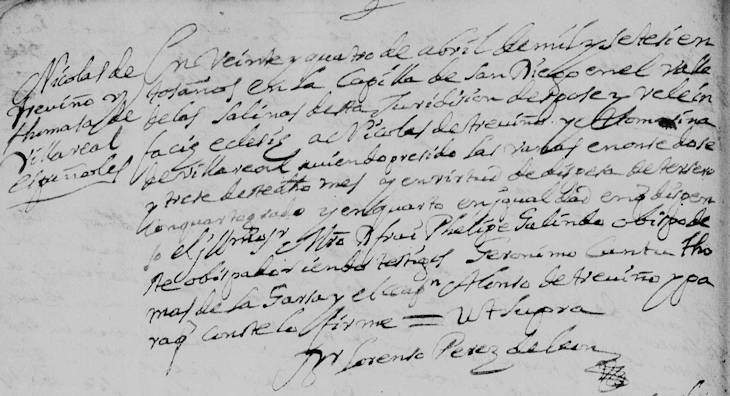 Nicolas de
trevino y
thomasa de
Villareal
españoles
En Veinte y quatro de abril de mil y setesien
tos años en la Capilla de San Diego en el Valle
de las Salinas desta Juridision despose y vele in
facie eclesie a Nicolas de treviño y a tomasina
de Villareal aviendo presedido las en onse dose
y trese deste dho mes y en virtud de dispesa de tersero
con quarto grado y en quarto en igualdad en q dispen
so el Sr Mro D frai Phelipe Galindo obispo de
ste obispado siendo testigos Geronimo Cantu tho
mas de la Garsa y el cap.n Alonso de treviño y pa
ra q conste lo firme = Ut supra
Lorenso Perez de leon